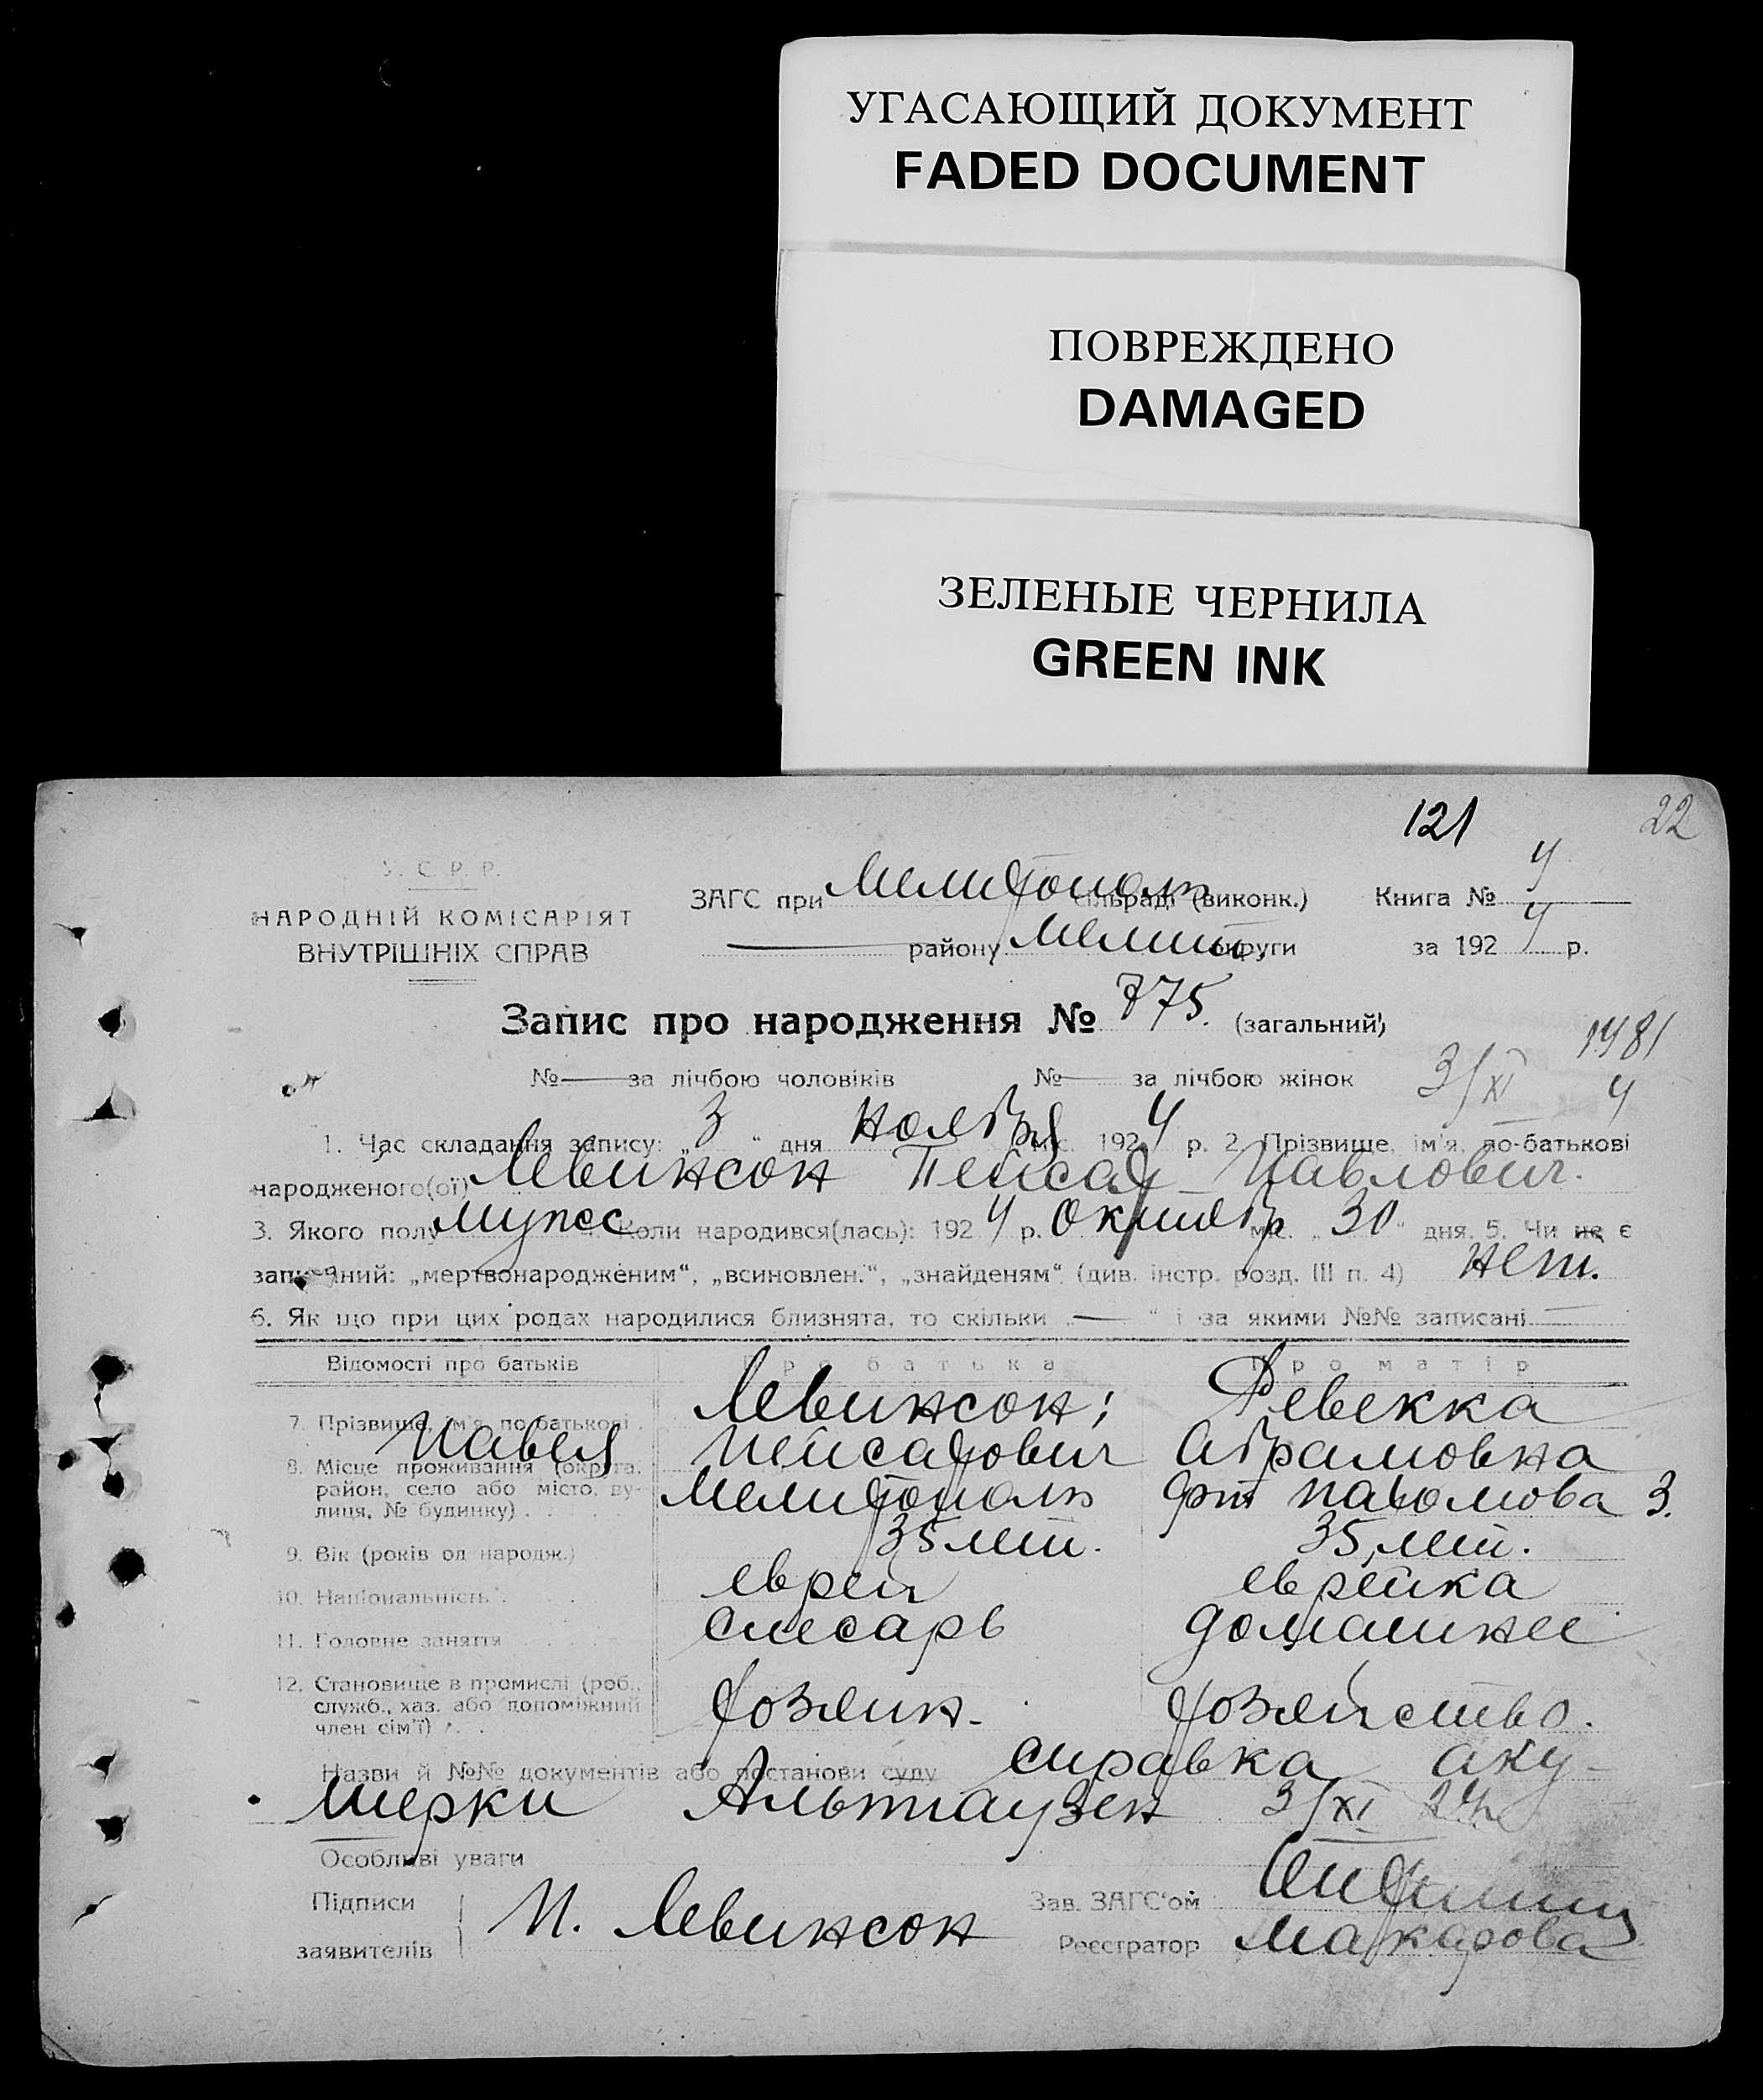 УГАСАЮЩИЙ ДОКУМЕНТ
FADED DOCUMENT
ПОВРЕЖДЕНО
DAMAGED
ЗЕЛЕНЫЕ ЧЕРНИЛА
GREEN INK
121
22
У. С. Р. Р.
НАРОДНІЙ КОМІСАРІЯТ
ВНУТРІШНІХ СПРАВ
ЗАГС при Мелитополь сільраді (виконк.) Книга № 4
району Мелит. округи за 1924 р.
Запис про народження № 775. (загальний)
1481
№ — за лічбою чоловіків № — за лічбою жінок 3/XI 4
1. Час складання запису: „3" дня ноября міс. 1924 р. 2. Прізвище, ім'я, по-батькові
народженого(ої) Левинсон Пейсах Павлович.
3. Якого полу мужес 4. Коли народився(лась): 1924 р. октября міс. „30" дня. 5. Чи не є
записаний: „мертвонародженим", „всиновлен.", „знайденям" (див. інстр. розд. III п. 4) нет.
6. Як що при цих родах народилися близнята, то скільки — " і за якими №№ записані —
Відомості про батьків Про батька Про матір
7. Прізвище, ім'я, по-батькові Левинсон; Ревекка
Павел Пейсахович Абрамовна
8. Місце проживання (округа,
район, село або місто, ву-
лиця, № будинку) Мелитополь 3.
9. Вік (років од народж.) 35 лет. 35 лет.
10. Національність еврей еврейка
11. Головне заняття слесарь домашнее
12. Становище в промислі (роб.,
служб., хаз. або допоміжний
член сім'ї) хозяин. хозяйство.
Назви й №№ документів або постанови суду справка аку-
шерки Альтгаузен 3/XI 24
Особливі уваги
Підписи
заявителів П. Левинсон
Зав. ЗАГС'ом
Реєстратор Макарова